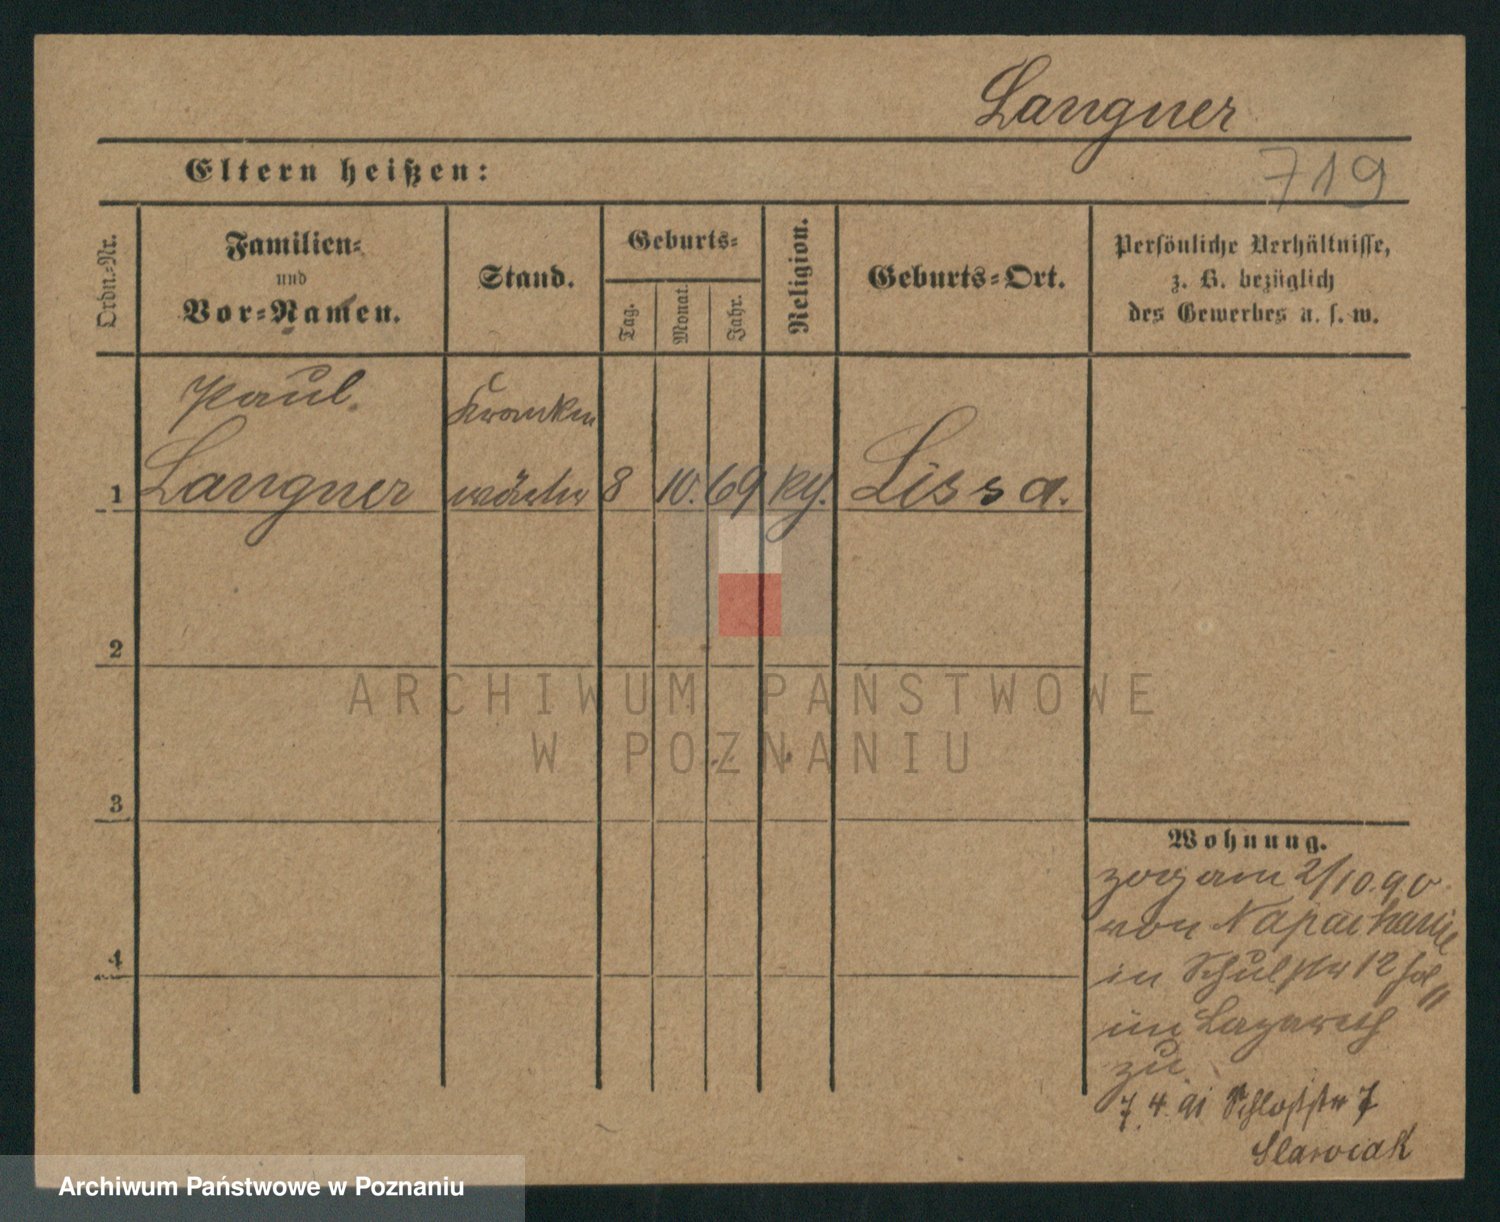 Langner
Eltern heißen:
719
Ordn.-Nr.
Familien-
und
Vor-Namen.
Stand.
Geburts-
Tag.
Monat.
Jahr.
Religion.
Geburts-Ort.
Persönliche Verhältnisse,
z. B. bezüglich
des Gewerbes u. s. w.
Paul
Kranken
1 Langner wärter 8 10. 69 Lissa.
2
ARCHIWUM PAŃSTWOWE
W POZNANIU
3
Wohnung.
zog am 2/10.90
von
4
in Schulstr 12
im Lazareth
zu.
7.4.91 Schloßstr 7
Slawiak
Archiwum Państwowe w Poznaniu